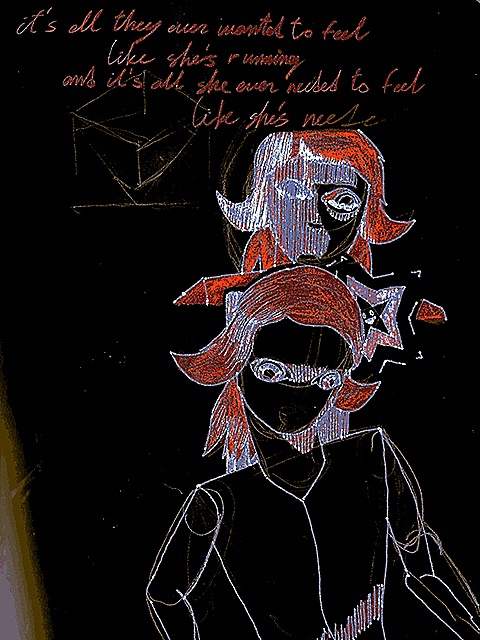 it's all they ever wanted to feel
like she's running
and it's all she ever needed to feel
like she's